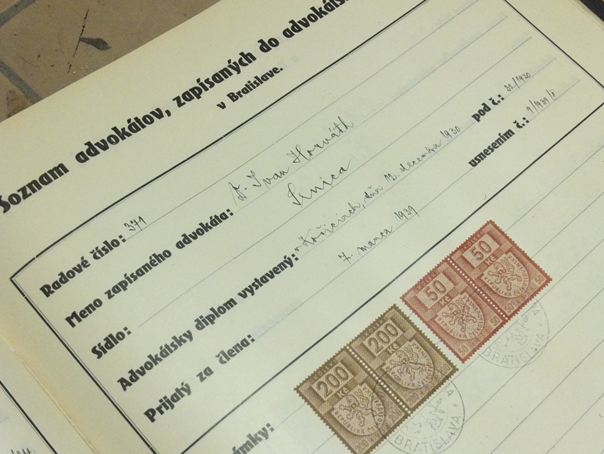 Soznam advokátov, zapísaných do advokáts
v Bratislave.
Radové číslo: 371
Meno zapísaného advokáta: Dr. Ivan Horváth
Sídlo: Senica
Advokátsky diplom vystavený: v Košiciach, dňa decembra 1930 pod č.: /1930
Prijatý za člena: 7. marca 1939 usnesením č.:
nímky:
200 Kč
200 Kč
50
50
BRATISLAVA
BRATISLAVA